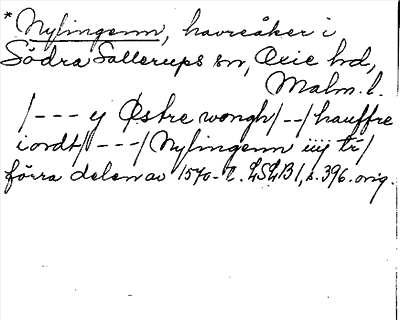 * Nylingenn, havreåker i
Södra Sallerups sn, Oxie hd,
Malm. l.
/--- y Østre wongh/--/hauffre
iordt/---/Nylingenn iiij tr/
förra delen av 1570-t. LSLB1, s. 396. orig.